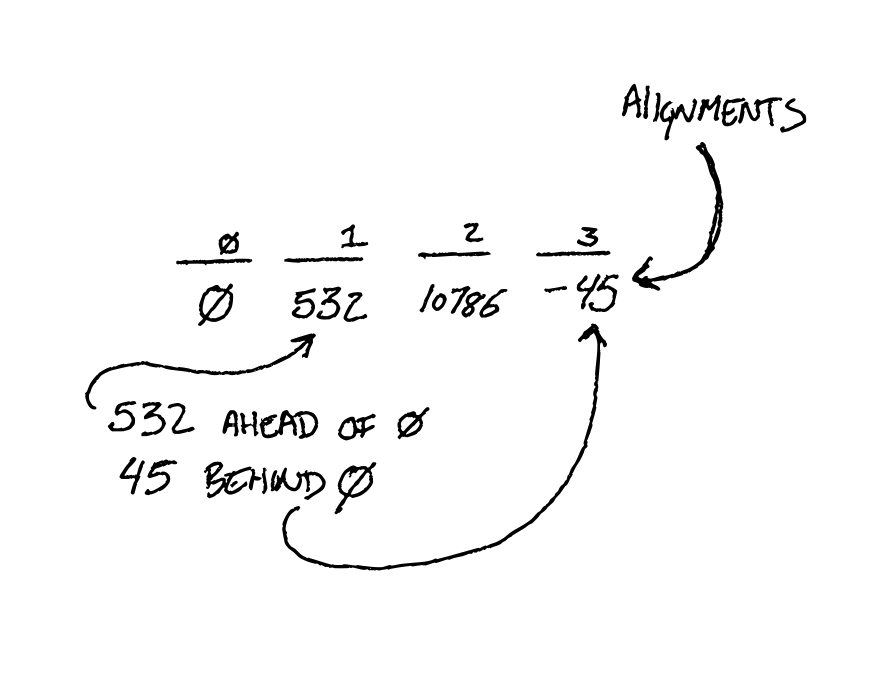 AlIGNMENTS
0 1 2 3
0 532 10786 -45
532 AHEAD OF 0
45 BEHIND 0